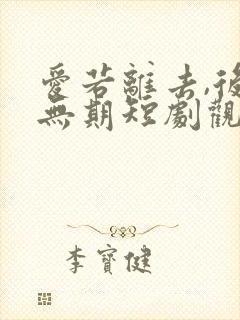 愛若離去,後
無期短劇觀
李寶健